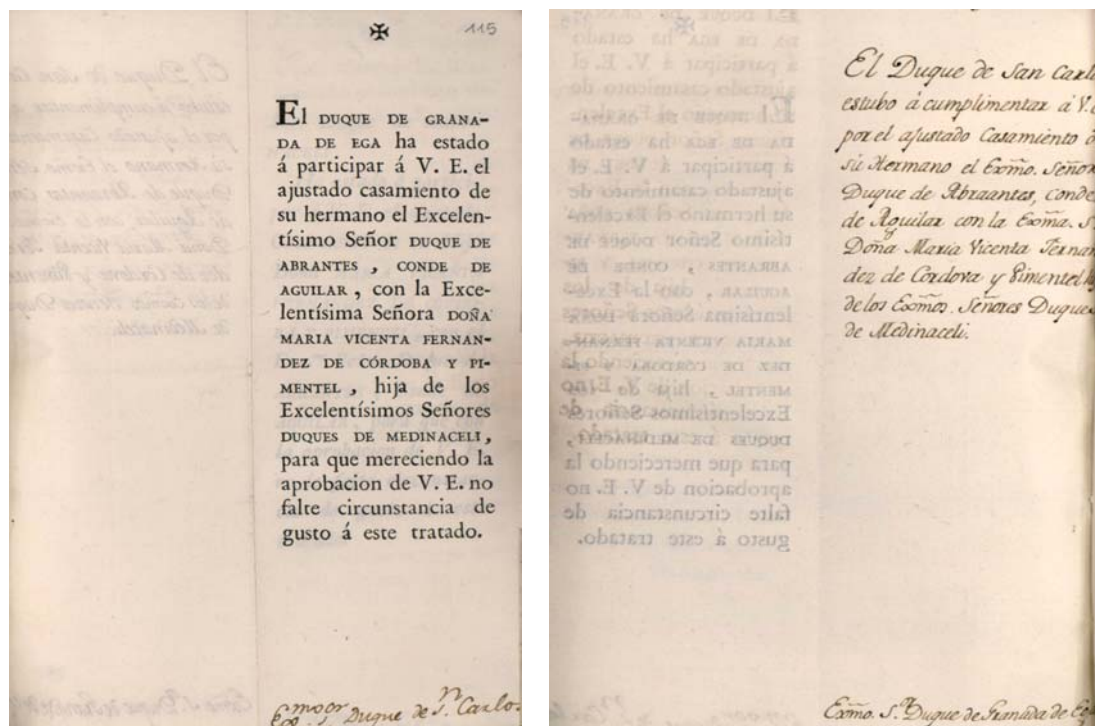 ✠ 115
El DUQUE DE GRANA-
DA DE EGA ha estado
á participar á V. E. el
ajustado casamiento de
su hermano el Excelen-
tísimo Señor DUQUE DE
ABRANTES, CONDE DE
AGUILAR, con la Exce-
lentísima Señora DOÑA
MARIA VICENTA FERNAN-
DEZ DE CÓRDOBA Y PI-
MENTEL, hija de los
Excelentísimos Señores
DUQUES DE MEDINACELI,
para que mereciendo la
aprobacion de V. E. no
falte circunstancia de
gusto á este tratado.
Duque de S.ⁿ Carlos
El Duque de San Carlo
estubo á cumplimentar á V.
por el ajustado Casamiento
su Hermano el Exm̃o. Señor
Duque de Abraantes, conde
de Aguilar con la Exm̃a. S.
Doña Maria Vicenta Fernan
dez de Cordova y Pimentel
de los Exm̃os. Señores Duque
de Medinaceli.
Exm̃o. S.ʳ Duque de Granada de